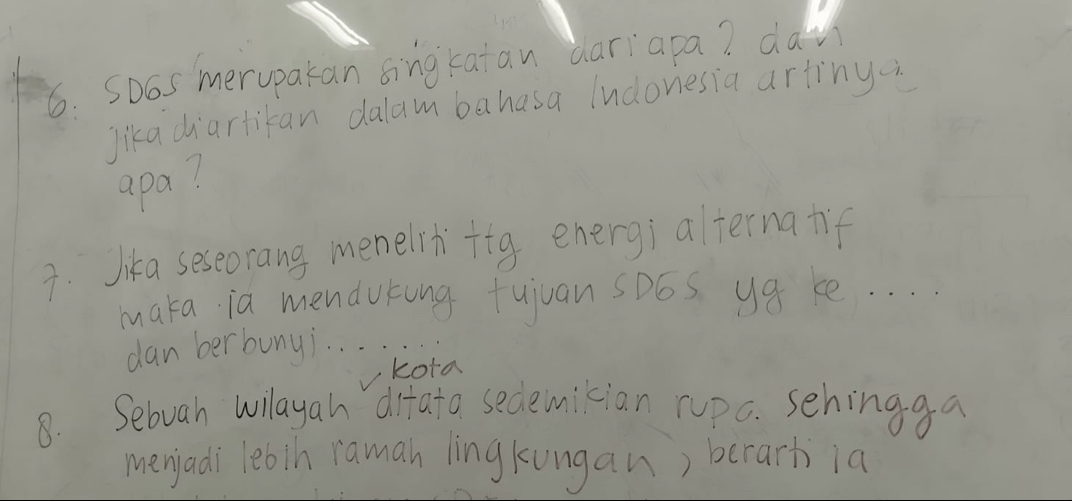 6. SDGs merupakan singkatan dari apa? dan
jika diartikan dalam bahasa Indonesia artinya
apa?
7. Jika seseorang meneliti ttg energi alternatif
maka ia mendukung tujuan SDGS yg ke ....
dan berbunyi .......
kota
8. Sebuah wilayah ✓ ditata sedemikian rupa sehingga
menjadi lebih ramah lingkungan, berarti ia